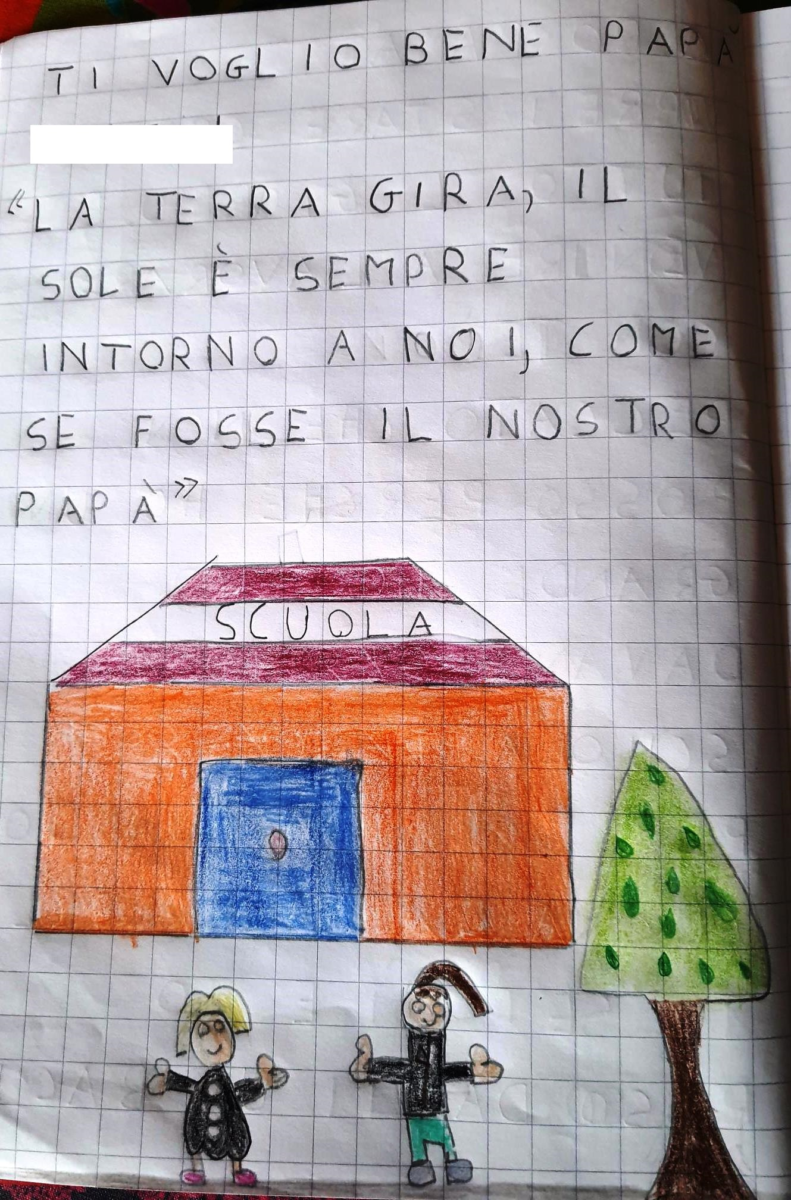 TI VOGLIO BENE PAPÀ
“LA TERRA GIRA, IL
SOLE È SEMPRE
INTORNO A NOI, COME
SE FOSSE IL NOSTRO
PAPÀ”
SCUOLA